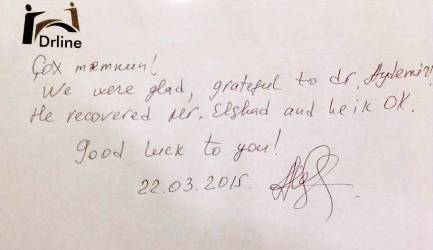 Drline
Çox məmnun!
We were glad, grateful to dr. Aydemir!
He recovered Mr. Elshad and he is OK.
Good luck to you!
22.03.2015.